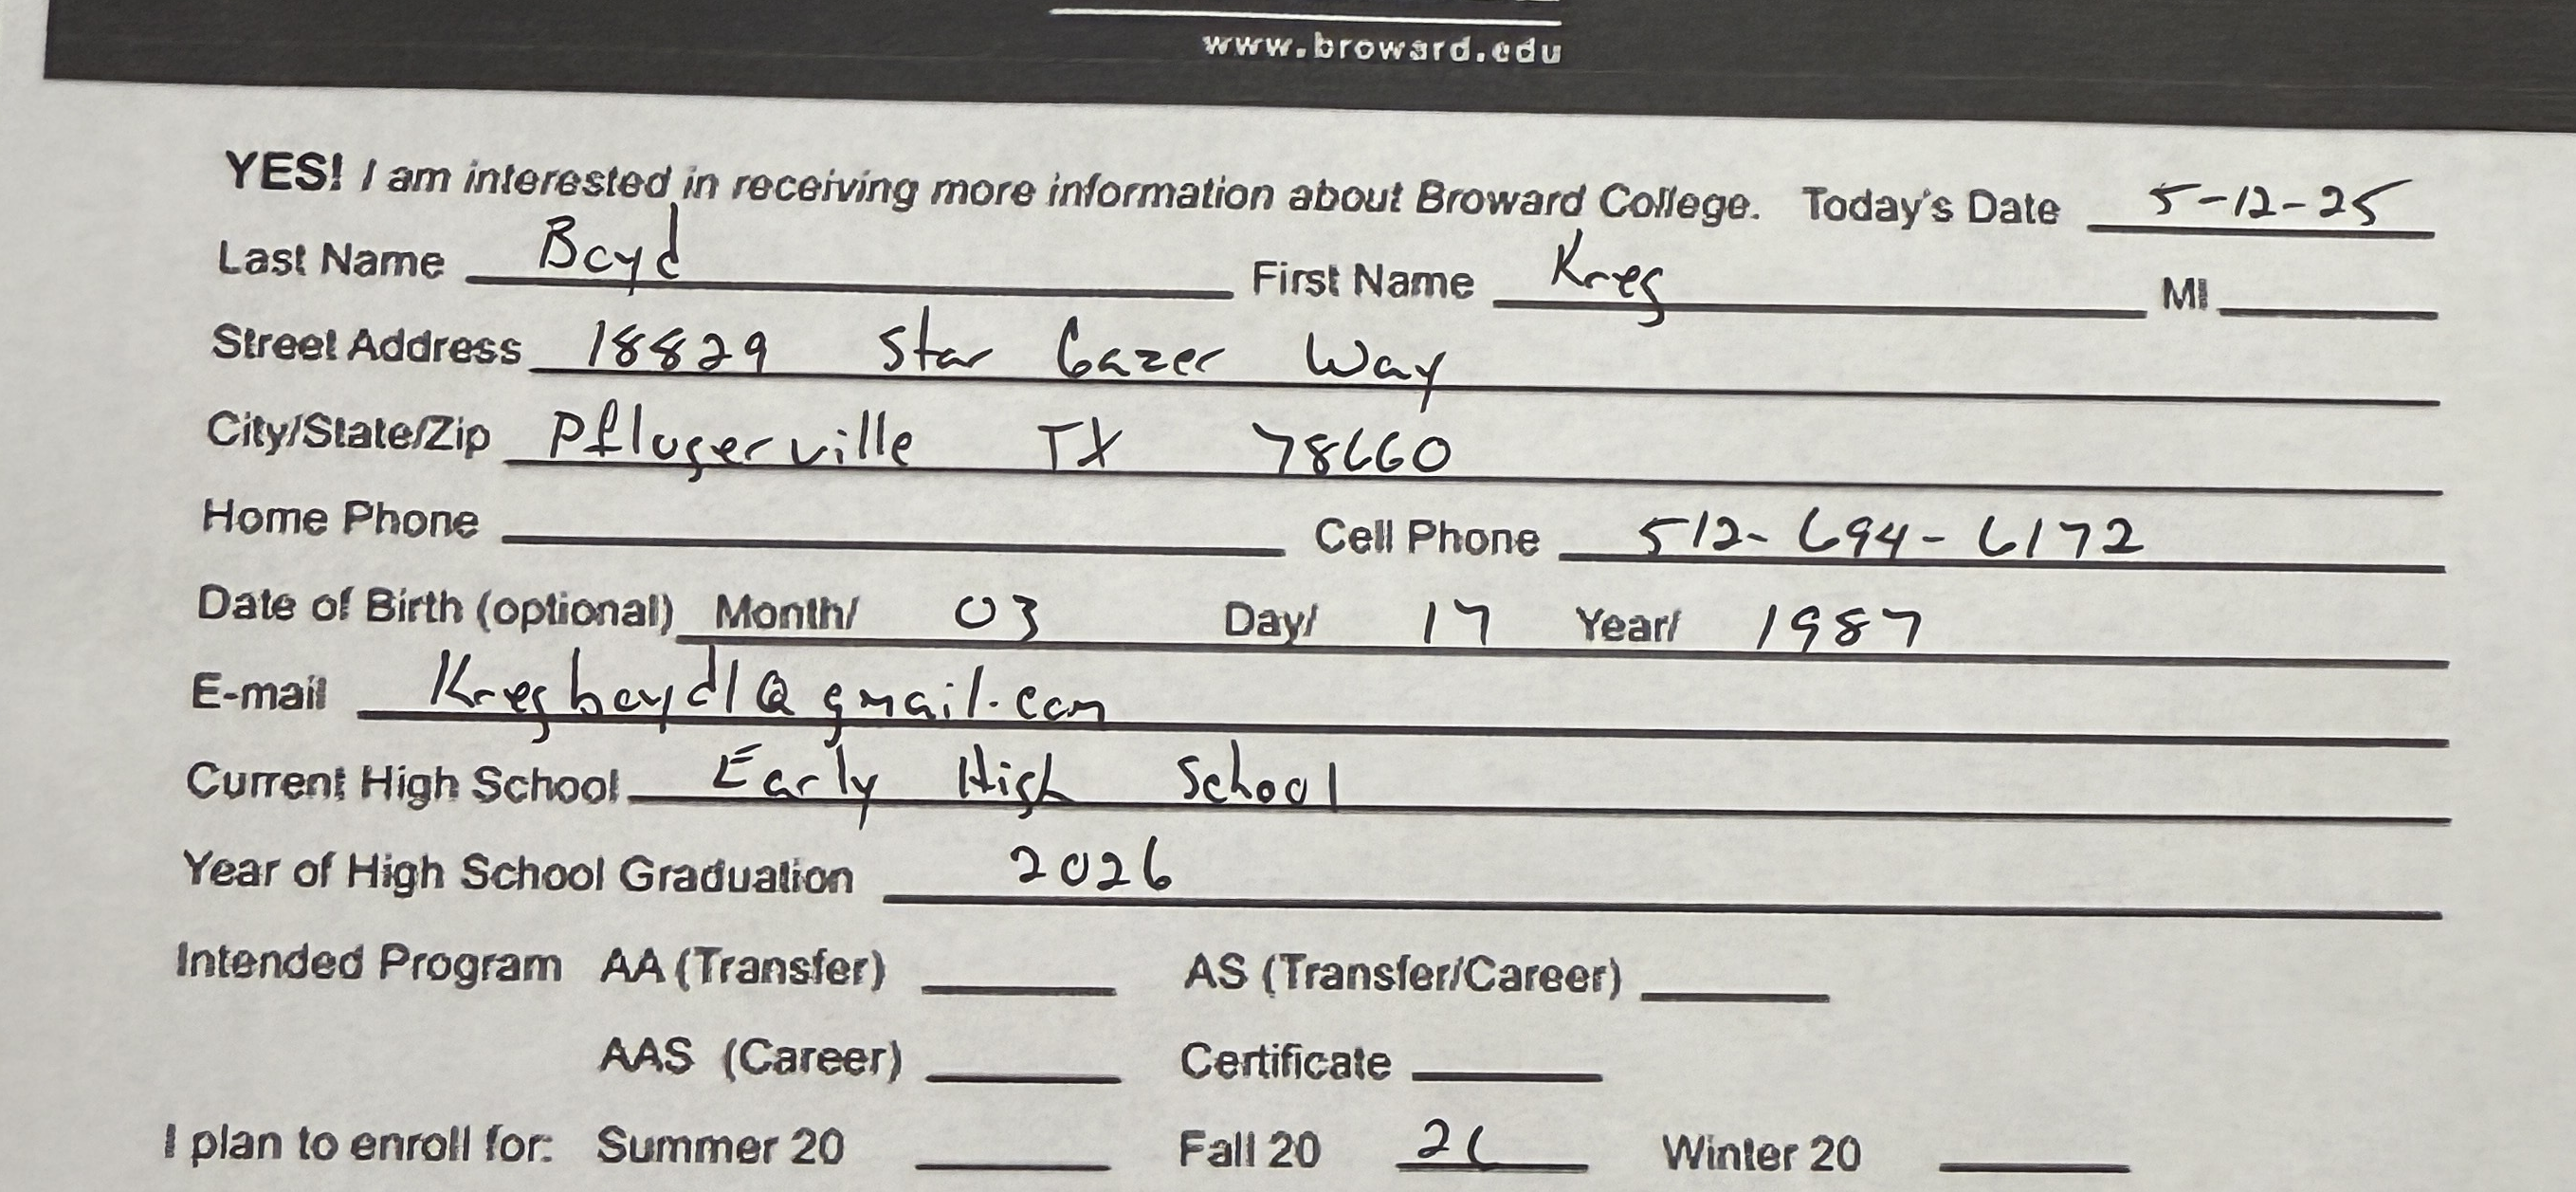 www.broward.edu
YES! I am interested in receiving more information about Broward College. Today's Date 5-12-25
Last Name Boyd First Name Kreg MI
Street Address 18829 Star Gazer Way
City/State/Zip Pflugerville TX 78660
Home Phone Cell Phone 512-694-6172
Date of Birth (optional) Month/ 03 Day/ 17 Year/ 1987
E-mail Kregboyd1@gmail.com
Current High School Early High School
Year of High School Graduation 2026
Intended Program AA (Transfer) AS (Transfer/Career)
AAS (Career) Certificate
I plan to enroll for: Summer 20 Fall 20 26 Winter 20